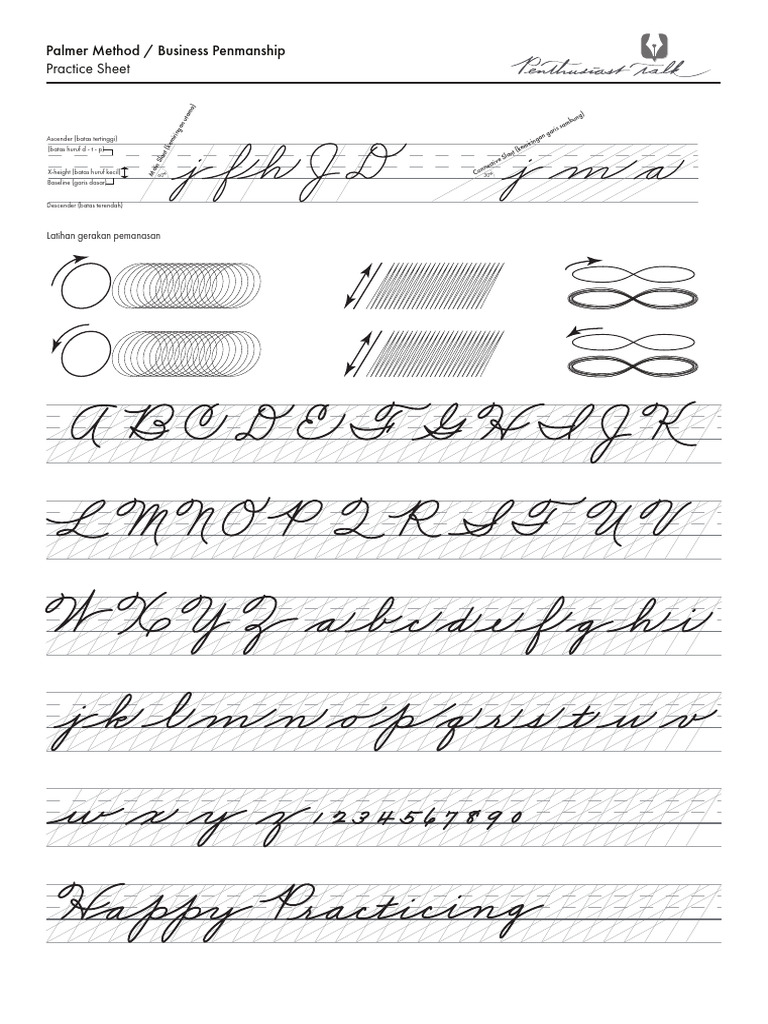 Palmer Method / Business Penmanship
Practice Sheet
Penthusiast Talk
Ascender (batas tertinggi)
(batas huruf d - t - p)
X-height (batas huruf kecil)
Baseline (garis dasar)
Descender (batas terendah)
Main Slant (kemiringan utama)
j f h J D
Connective Slant (kemiringan garis sambung)
j m a
Latihan gerakan pemanasan
A B C D E F G H I J K
L M N O P Q R S T U V
W X Y Z a b c d e f g h i
j k l m n o p q r s t u v
w x y z 1 2 3 4 5 6 7 8 9 0
Happy Practicing